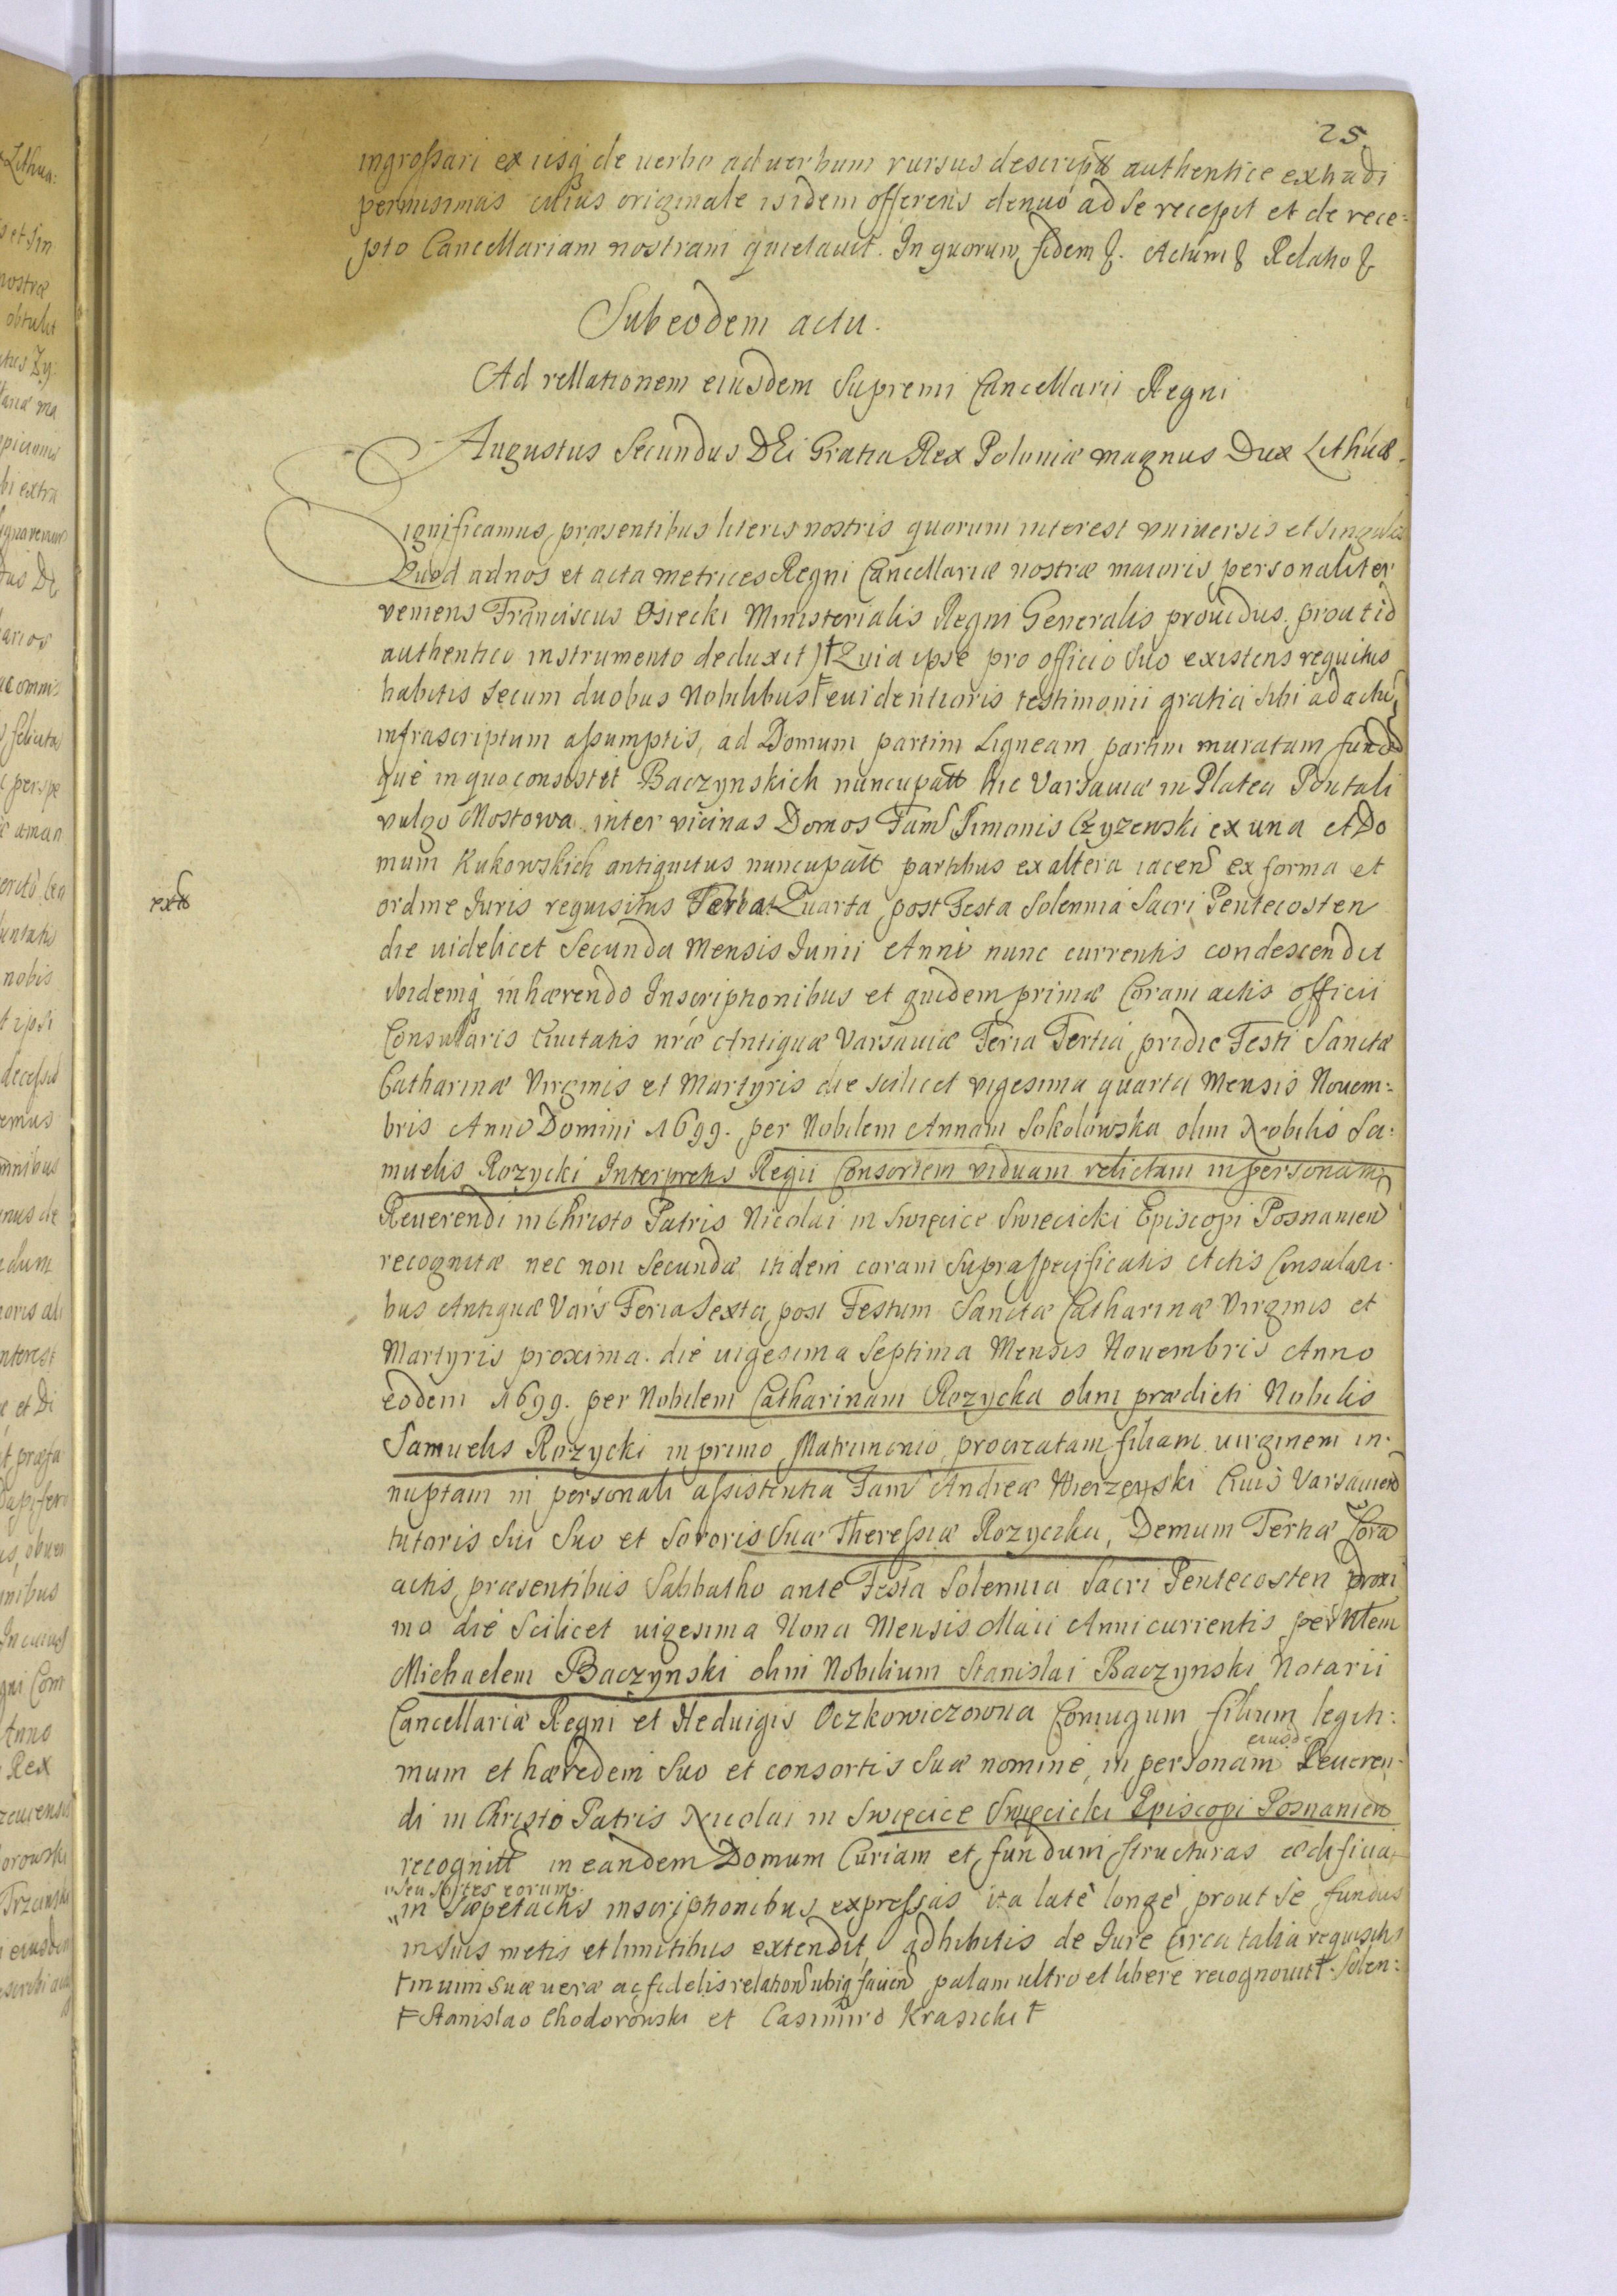 25.
ingrossari ex iisq de uerbo ad uerbum rursus descript authentice extradi
permisimus cuius originale isidem offerens denuò ad se recepit et de rece=
pto Cancellariam nostram quietauit. In quorum fidem &. Actum & Relatio &
Sub eodem actu.
Ad rellationem eiusdem Supremi Cancellarii Regni
Augustus Secundus DEi Gratia Rex Poloniæ magnus Dux Lithuæ.
Significamus præsentibus literis nostris quorum interest vniuersis et singulis
Quod ad nos et acta metrices Regni Cancellariæ nostræ maioris personaliter
veniens Franciscus Osiecki Ministerialis Regni Generalis prouidus. prout id
authentico instrumento deduxit) † Quia ipse pro officio suo existens requitus
habitis secum duobus Nobilibus Ŧ euidentioris testimonii gratia sibi ad actu
infrascriptum assumptis, ad Domum partim Ligneam partim muratam fundū
què in quo consistit Baczynskich nuncupatt hic Varsauiæ in Platea Pontali
vulgo Mostowa inter vicinas Domos Fam Simonis Czyzewski ex una et Do
mum Kukowskich antiquitus nuncupatt partibus ex altera iacen ex forma et
extt
ordine Iuris requisitus Feria Quarta post Festa Solennia Sacri Pentecosten
die uidelicet Secunda Mensis Iunii Anni nunc currentis condescendit
ibidemq inhærendo Inscriptionibus et quidem primæ Coram actis officii
Consularis Ciuitatis nræ Antiquæ Varsauiæ Feria Tertia pridie Festi Sanctæ
Catharinæ Virginis et Martyris die scilicet vigesima quarta Mensis Nouem=
bris Anno Domini 1699. per Nobilem Annam Sokolowska olim Nobilis Sa=
muelis Rozycki Interpretis Regii Consortem viduam relictam in personam
Reuerendi in Christo Patris Nicolai in Swięcice Swiecicki Episcopi Posnanien
recognitæ nec non Secundæ itidem coram supraspecificatis Actis Consulari=
bus Antiquæ Vars Feria Sexta post Festum Sanctæ Catharinæ Virginis et
Martyris proxima. die uigesima Septima Mensis Nouembris Anno
eodem 1699. per Nobilem Catharinam Rozycka olim prædicti Nobilis
Samuelis Rozycki in primo Matrimonio procreatam filiam uirginem in=
nuptam in personali assistentia Fam Andreæ Wierzeyski Ciuis Varsauien
tutoris sui suo et Sororis suæ Theressiæ Rozycka, Demum Tertiæ Cora
actis præsentibus Sabbatho ante Festa Solennia Sacri Pentecosten proxi
mo die Scilicet uigesima Nona Mensis Maii Anni currentis per Nblem
Michaelem Baczynski olim Nobilium Stanislai Baczynski Notarii
Cancellariæ Regni et Heduigis Oczkowiczowna Coniugum filium legiti=
mum et hæredem suo et consortis suæ nomine, in personam eiusde Reueren=
di in Christo Patris Nicolai in Swięcice Swięcicki Episcopi Posnanien
recognitt in eandem Domum Curiam et fundum structuras ædificia
"seu sortes eorum"
"in sæpefatis inscriptionibus expressas ita latè longè prout se fundus
in suis metis et limitibus extendit, adhibitis de Iure circa talia requisitis
† in uim suæ ueræ ac fidelis relation ubiq fauien palam ultro et libere recognouit †. Solen=
Ŧ Stanislao Chodorowski et Casimiro Krasicki Ŧ